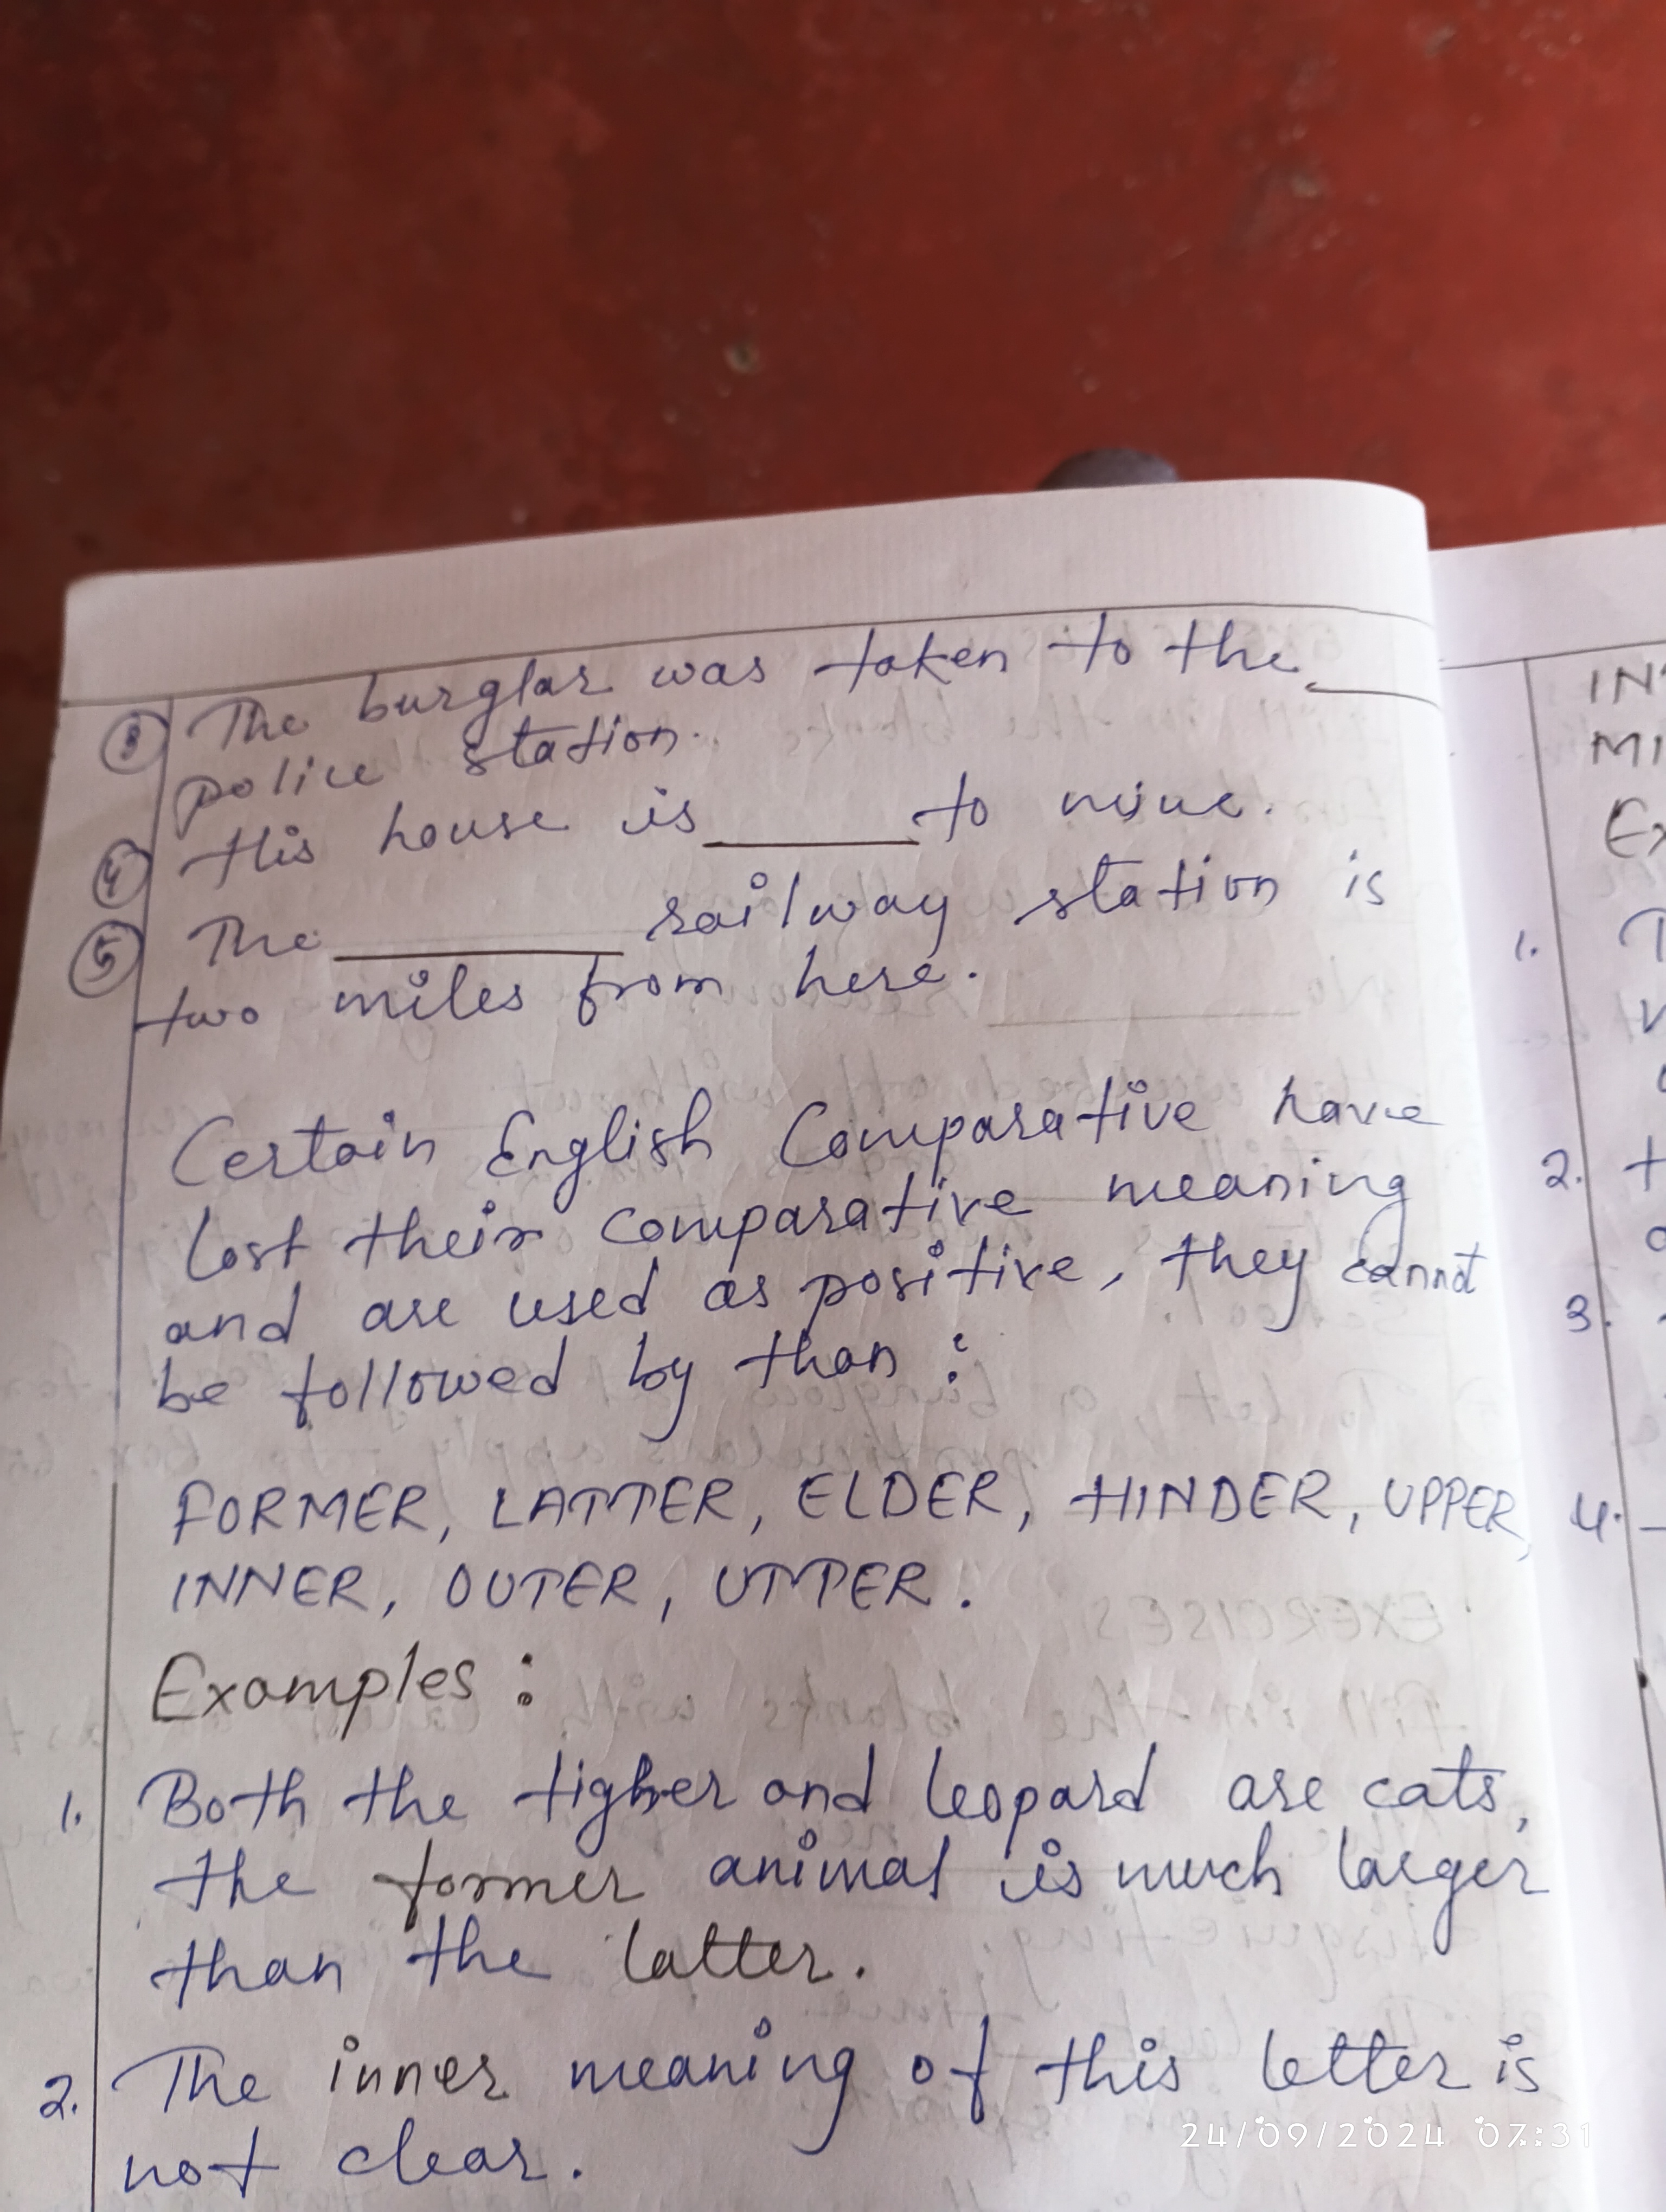 ③ The burglar was taken to the ___
police station.
④ His house is ___ to mine.
⑤ The ___ railway station is
two miles from here.
Certain English Comparative have
lost their comparative meaning
and are used as positive, they cannot
be followed by than :
FORMER, LATTER, ELDER, HINDER, UPPER,
INNER, OUTER, UTTER.
Examples :
1. Both the tigher and leopard are cats,
the former animal is much larger
than the latter.
2. The inner meaning of this letter is
not clear.
1.
2.
3.
4.
24/09/2024 07:31